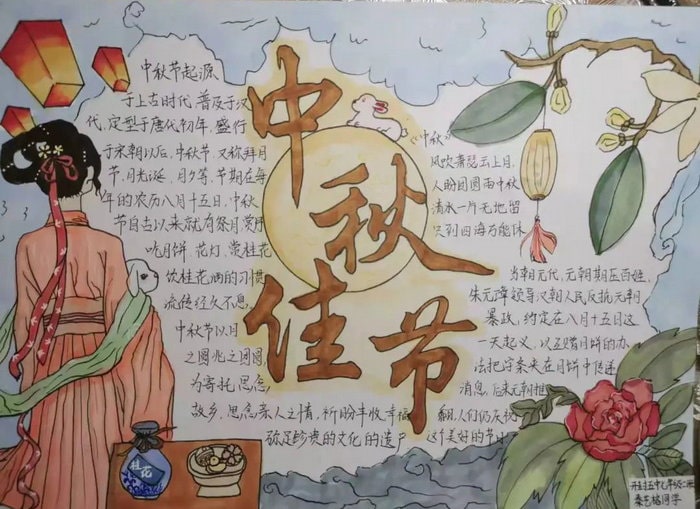 中秋佳节
中秋节起源
于上古时代,普及于汉
代,定型于唐代初年,盛行
于宋朝以后,中秋节,又称拜月
节,月光诞,月夕等,节期在每
年的农历八月十五日,中秋
节自古以来就有祭月赏月
吃月饼 花灯,赏桂花
饮桂花酒的习惯
流传经久不息,
中秋节以月
之圆兆之团圆,
为寄托思念,
故乡,思念亲人之情,祈盼丰收幸福
弥足珍贵的文化的遗产
《中秋》
风吹 云上月,
人盼团圆雨中秋
清冰一片无地留
只到四海万能休
当朝元代,元朝期压百姓,
朱元璋领导汉朝人民反抗元朝
暴政,约定在八月十五日这
一天起义,以互赠月饼的办
法把字条夹在月饼中传递
消息,后来元朝推
翻,人们仍庆祝
这个美好的节日
桂花
开封五中七年级二班
秦艺 同学